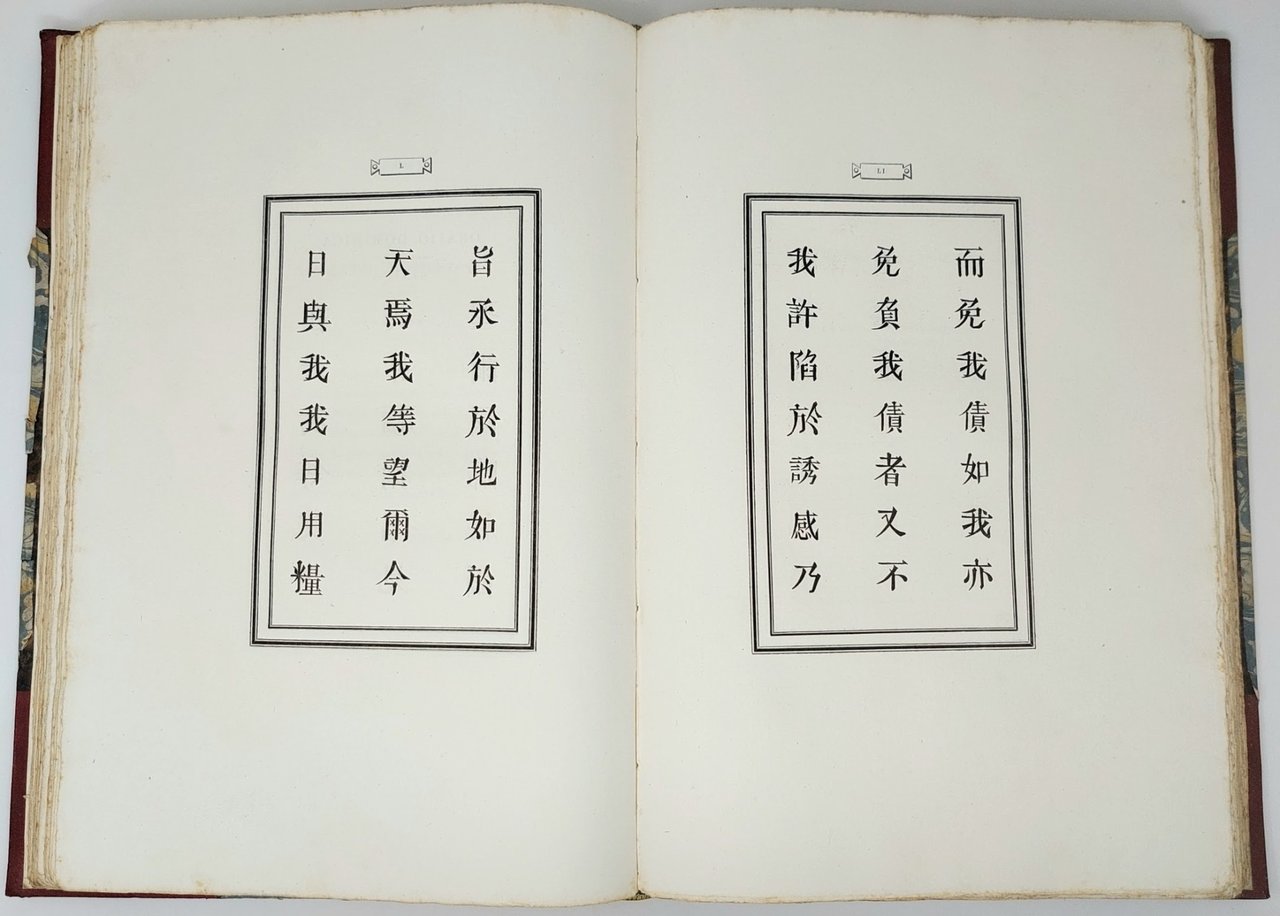 L
旨承行於地如於
天焉我等望爾今
日與我我日用糧
LI
而免我債如我亦
免負我債者又不
我許陷於誘感乃